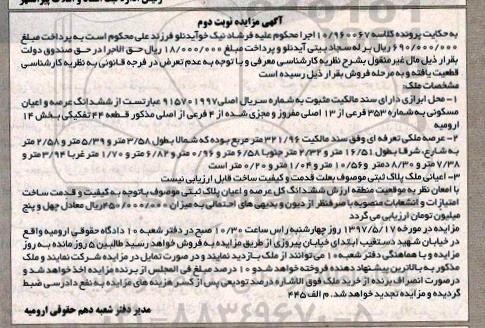 آگهی مزایده نوبت دوم
به حکایت پرونده کلاسه ۱۰/۹۶۰۰۶۷ اجرا محکوم علیه فرشاد نیک خو آیدنلو فرزند علی محکوم است به پرداخت مبلغ
۶۹۰/۰۰۰/۰۰۰ ریال بر له سجاد بیتی آیدنلو و پرداخت مبلغ ۱۸/۰۰۰/۰۰۰ ریال حق الاجرا در حق صندوق دولت
بقرار ذیل مال غیر منقول بشرح نظریه کارشناسی معرفی و با توجه به عدم تعرض در فرجه قانونی به نظریه کارشناسی
قطعیت یافته و به مرحله فروش بقرار ذیل رسیده است
مشخصات ملک:
۱- محل ابرازی دارای سند مالکیت مثبوت به شماره سریال اصلی ۹۱۵۷۰۱۹۹۷ عبارتست از ششدانگ عرصه و اعیان
مسکونی به شماره ۳۵۳ فرعی از ۱۳ اصلی مفروز و مجزی شده از ۲ فرعی از اصلی مذکور قطعه ۴۴ تفکیکی بخش ۱۴
ارومیه
۲- عرصه ملکی تعرفه ای وفق سند مالکیت ۳۲۱/۹۶ متر مربع بوده که شمالا بطول ۳/۵۸ متر و ۵/۳۹ متر و ۲/۵۸ متر
به شارع، شرقا بطول ۱۶/۵۱ متر و ۲/۳۲ متر جنوبا ۶/۵۸ متر و ۰/۹۶ متر و ۶/۸۲ متر و ۱/۷۰ متر غربا ۳/۹۴ متر و
۷/۳۸ متر و ۸/۳۰ متر و ۱۰/۵۶ متر و ۱/۰۴ متر و ۰/۲۰ متر است
۳- اعیانی ملک پلاک ثبتی موصوف بعلت قدمت و کیفیت ساخت قابل ارزیابی نیست
با امعان نظر به موقعیت منطقه ارزش ششدانگ کل عرصه و اعیان پلاک ثبتی موصوف با توجه به کیفیت و قدمت ساخت
امتیازات و انشعابات منصوبه با صرفنظر از دیون و بدیهی های احتمالی به میزان ۴۵۰/۰۰۰/۰۰۰ ریال معادل چهل و پنج
میلیون تومان ارزیابی می گردد
مزایده در مورخه ۱۳۹۷/۵/۱۷ روز چهارشنبه راس ساعت ۱۰/۳۰ صبح در دفتر شعبه ۱۰ دادگاه حقوقی ارومیه واقع
در خیابان شهید دستغیب ابتدای خیابان پیروزی از طریق مزایده به فروش خواهد رسید طالبین ۵ روز مانده به روز
مزایده و با هماهنگی دفتر شعبه ۱۰ می توانند از ملک بازدید نمایند و در صورت تمایل در مزایده شرکت نمایند و ملک
مذکور به بالاترین پیشنهاد دهنده فروخته خواهد شد و ۱۰ درصد مبلغ فی المجلس از برنده مزایده اخذ خواهد شد و
در صورت انصراف برنده از خرید ملک فوق الاشاره درصد تودیعی پس از کسر هزینه های مزایده به نفع دادرسی ضبط
گردیده و مزایده تجدید خواهد شد. م الف ۴۴۵
مدیر دفتر شعبه دهم حقوقی ارومیه